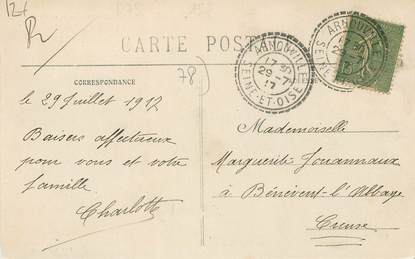 CARTE POST
CORRESPONDANCE
78)
ARNOUVILLE
17 30
29 -7
17
SEINE-ET-OISE
le 29 Juillet 1917
Baisers affectueux
pour vous et votre
famille
Charlotte
Mademoiselle
Marguerite Jouannaux
à Bénévent-l'Abbaye
Creuse